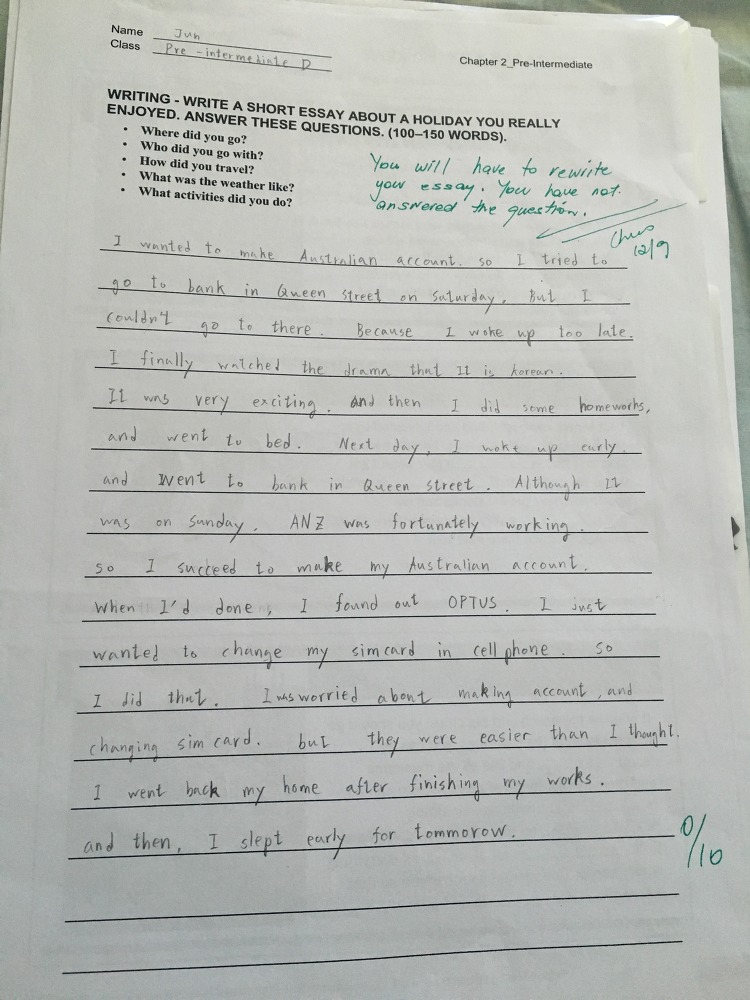 Name Jun
Class Pre-intermediate D
Chapter 2_Pre-Intermediate
WRITING - WRITE A SHORT ESSAY ABOUT A HOLIDAY YOU REALLY
ENJOYED. ANSWER THESE QUESTIONS. (100–150 WORDS).
• Where did you go?
• Who did you go with?
• How did you travel?
• What was the weather like?
• What activities did you do?
You will have to rewrite
your essay. You have not
answered the question.
12/9
I wanted to make Australian account. so I tried to
go to bank in Queen street on Saturday. But I
couldn't go to there. Because I woke up too late.
I finally watched the drama that It is korean.
It was very exciting. And then I did some homeworks,
and went to bed. Next day, I woke up early
and went to bank in Queen street. Although it
was on sunday. ANZ was fortunately working.
so I succeed to make my Australian account.
When I'd done, I found out OPTUS. I just
wanted to change my simcard in cell phone. so
I did that. I was worried about making account, and
changing sim card. but they were easier than I thought.
I went back my home after finishing my works.
and then, I slept early for tommorow.
0/10